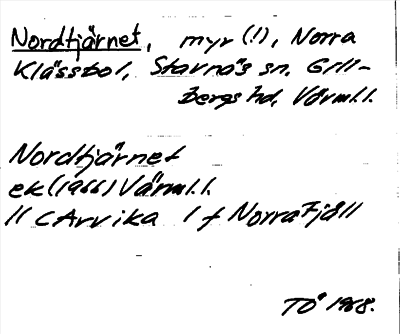 Nordtjärnet, myr (!), Norra
Klässbol, Stavnäs sn. Gill-
bergs hd, Värml.l.
Nordtjärnet
ek (1966) Värml.l.
11 C Arvika 1 f Norra Fjäll
TÖ 1968.